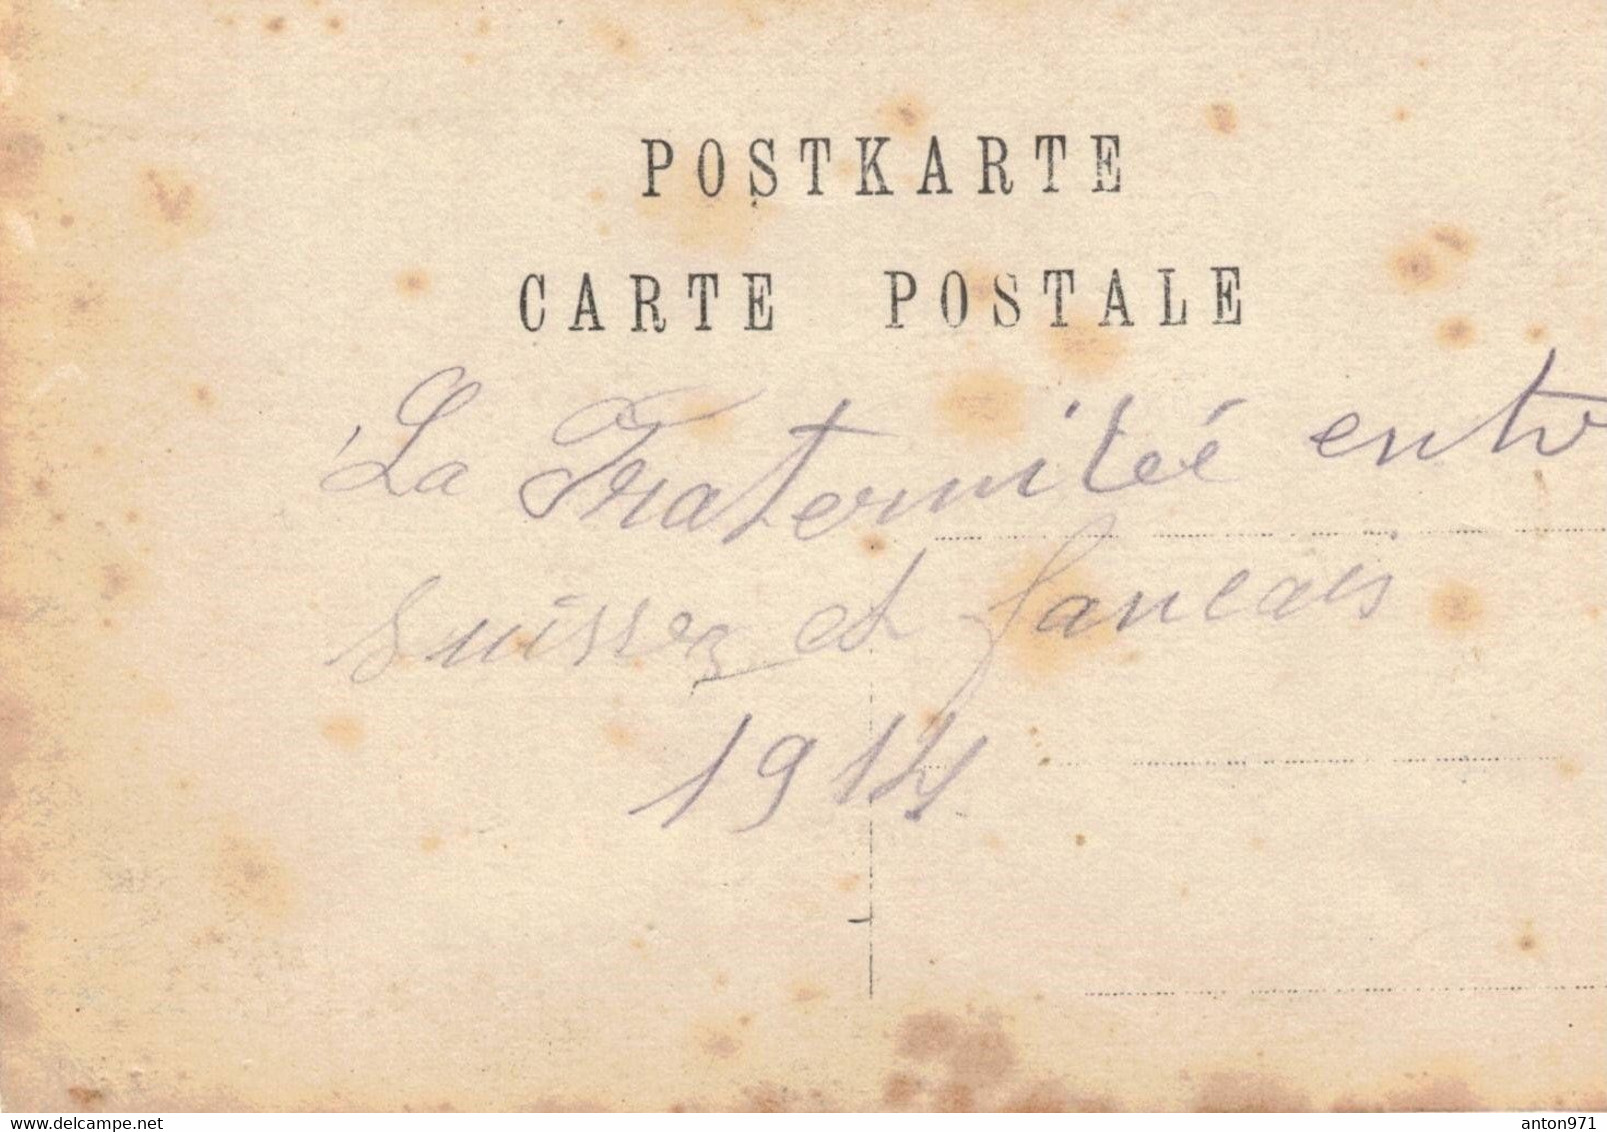 POSTKARTE
CARTE POSTALE
La Fraternitéé entr
suisses et fancais
1914
delcampe.net
anton971